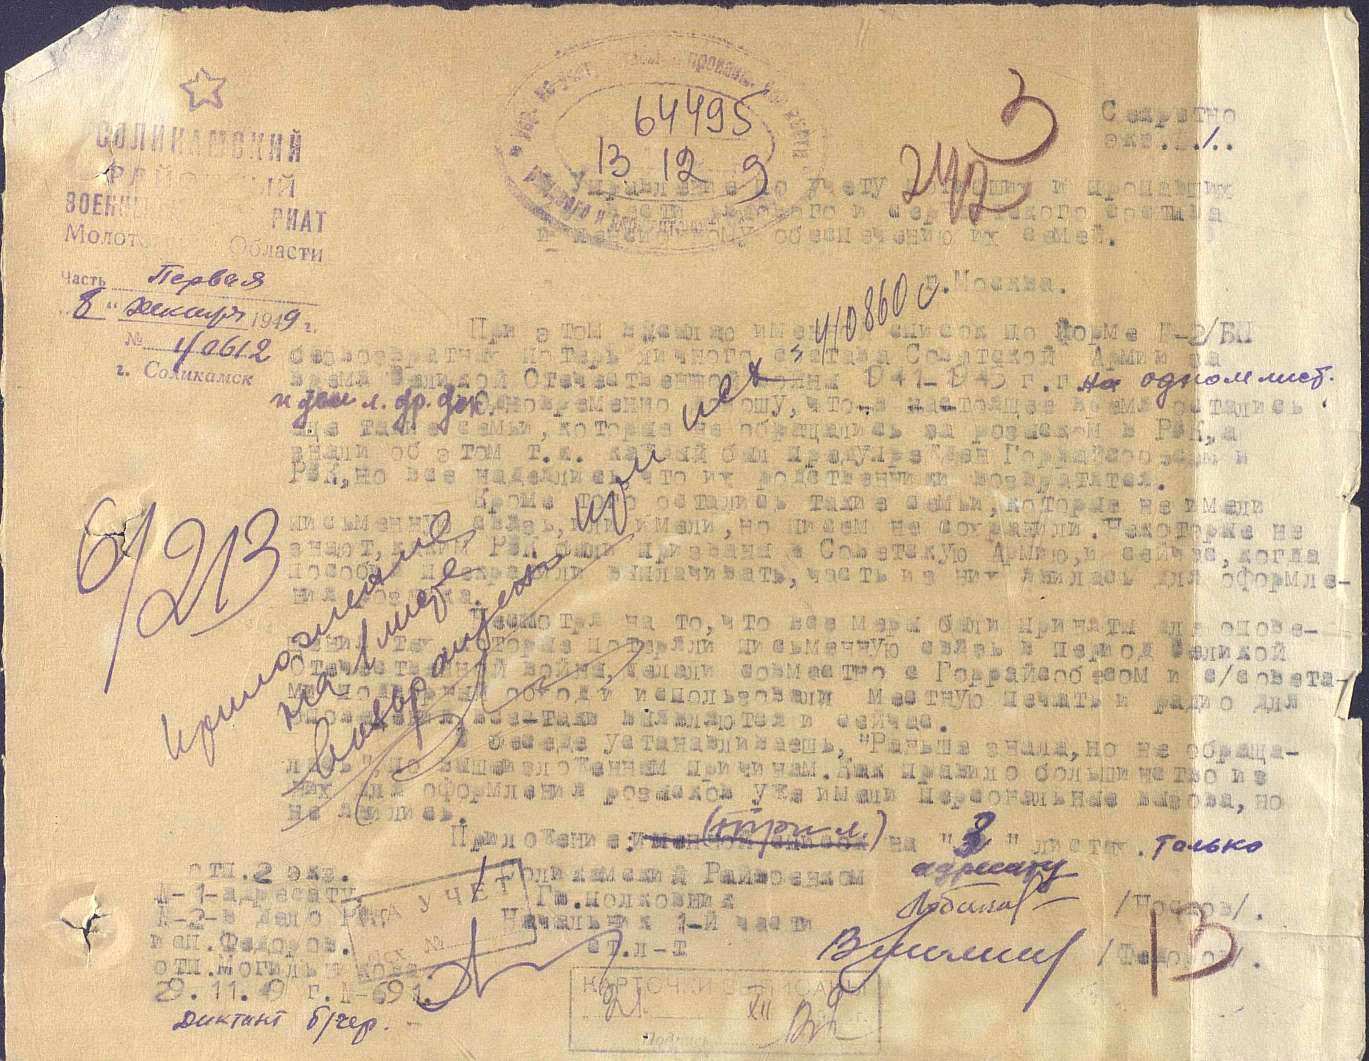 СОЛИКАМСКИЙ
РАЙОННЫЙ
РИАТ
Области
Часть Первая
"8" декабря 1949 г.
№ 1/0612
г. Соликамск
64495
13 12 9
3
242
Секретно
экз. 1.
Управление по учету погибших и пропавших
рядового и сержантского состава
и пенсионному обеспечению их семей.
г.Москва.
При этом именной список по форме №-2/БП
безвозвратных потерь личного состава Советской Армии за
время Великой Отечественной войны 1941-1945 г.г. на одном лист.
Одновременно доношу, что в настоящее время остались
еще такие семьи, которые не обращались за розыском в РВК, а
знали об этом т.к. каждый был предупрежден Горрайсобесом и
РВК, но все надеялись что их родственники возвратятся.
Кроме того остались такие семьи, которые не имели
письменную связь, или имели, но писем не сохранили. Некоторые не
знают, каким РВК были призваны в Советскую Армию, и сейчас, когда
пособие прекратили выплачивать, часть из них явилась для оформле-
ния розыска.
Несмотря на то, что все меры были приняты для опове-
щения тех, которые потеряли письменную связь в период Великой
Отечественной войны, делали совместно с Горрайсобесом и с/совета-
ми использовали местную печать и радио для
все-таки выявляются и сейчас.
В беседе устанавливаешь, "Раньше знала, но не обраща-
лась" по вышеизложенным причинам. Как правило большинство из
них для оформления розысков уже имели персональные вызова, но
не явились.
Приложение: именной список (три л.) на "3" листах. только
адресату
Соликамский Райвоенком
Гв.полковник /Носов/.
Начальник 1-й части
ст.л-т /Федоров/.
отп. 2 экз.
№-1-адресату
№-2-в дело РВК
исп.Федоров.
29.11.49 г. №-691.
6/213
Приложение
на 1 листе
4/0860с
НА УЧЕТ
№
КАРТОЧКИ
21 XII
13